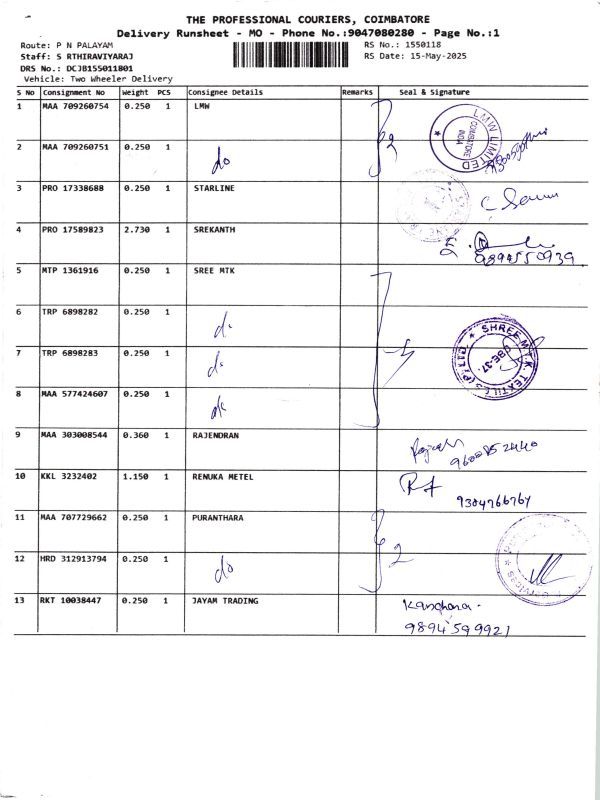 THE PROFESSIONAL COURIERS, COIMBATORE
Delivery Runsheet - MO - Phone No.:9047080280 - Page No.:1
Route: P N PALAYAM
RS No.: 1550118
Staff: S RTHIRAVIYARAJ
RS Date: 15-May-2025
DRS No.: DCJB155011801
Vehicle: Two Wheeler Delivery
S No Consignment No Weight PCS Consignee Details Remarks Seal & Signature
1 MAA 709260754 0.250 1 LMW
LMW LIMITED COIMBATORE INDIA
2 MAA 709260751 0.250 1 do
2
3 PRO 17338688 0.250 1 STARLINE
4 PRO 17589823 2.730 1 SREKANTH
9894550939
5 MTP 1361916 0.250 1 SREE MTK
6 TRP 6898282 0.250 1 do
7 TRP 6898283 0.250 1 do
SHREE M.T.K. TEXTILES (P) LTD. CBE-37.
8 MAA 577424607 0.250 1 do
9 MAA 303008544 0.360 1 RAJENDRAN
10 KKL 3232402 1.150 1 RENUKA METEL
9304766767
11 MAA 707729662 0.250 1 PURANTHARA
12 HRD 312913794 0.250 1 do
2
13 RKT 10038447 0.250 1 JAYAM TRADING
9894599921